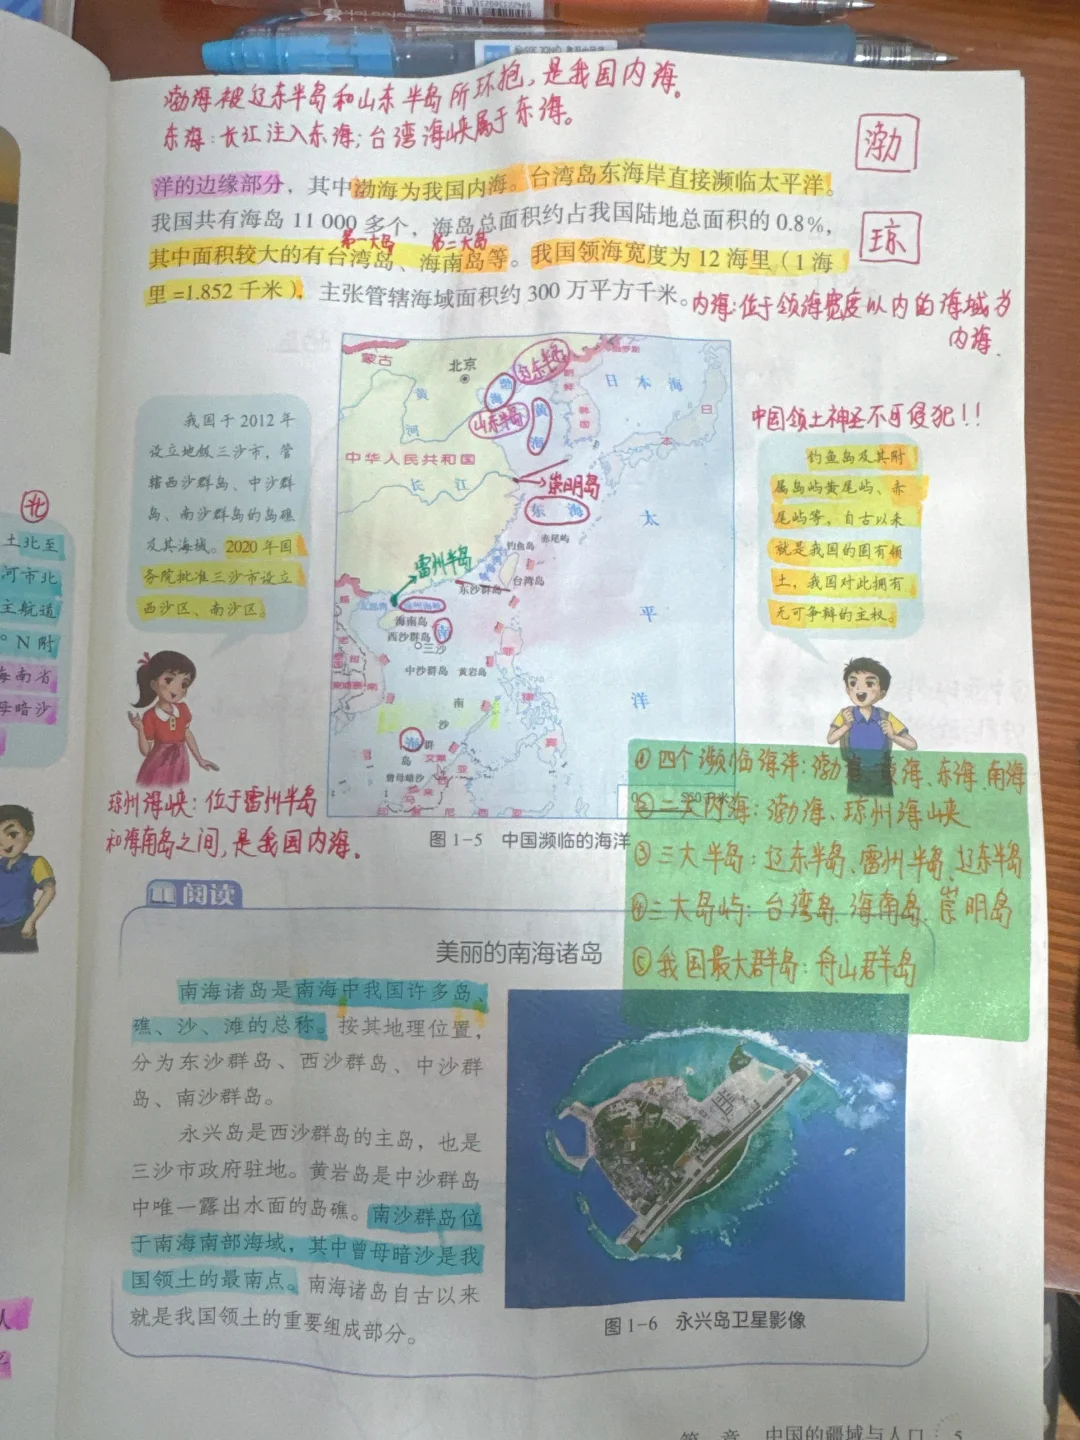 渤海被辽东半岛和山东半岛所环抱，是我国内海。
东海：长江注入东海；台湾海峡属于东海。
渤
琼
洋的边缘部分，其中渤海为我国内海。台湾岛东海岸直接濒临太平洋。
我国共有海岛 11 000 多个，海岛总面积约占我国陆地总面积的 0.8%，
第一大岛 第二大岛
其中面积较大的有台湾岛、海南岛等。我国领海宽度为 12 海里（1 海
里 =1.852 千米），主张管辖海域面积约 300 万平方千米。
内海：位于领海宽度以内的海域为
内海.
我国于 2012 年
设立地级三沙市，管
辖西沙群岛、中沙群
岛、南沙群岛的岛礁
及其海域。2020 年国
务院批准三沙市设立
西沙区、南沙区。
蒙古
北京
辽东半岛
渤海
山东半岛
黄海
黄河
朝鲜
韩国
日本海
日本
中华人民共和国
长江
崇明岛
东海
太平洋
钓鱼岛
赤尾屿
台湾岛
雷州半岛
东沙群岛
琼州海峡
海南岛
西沙群岛
三沙
中沙群岛
黄岩岛
南海
南沙群岛
曾母暗沙
文莱
中国领土神圣不可侵犯!!
钓鱼岛及其附
属岛屿黄尾屿、赤
尾屿等，自古以来
就是我国的固有领
土，我国对此拥有
无可争辩的主权。
琼州海峡：位于雷州半岛
和海南岛之间，是我国内海.
图 1-5 中国濒临的海洋
①四个濒临海洋：渤海、黄海、东海、南海
②二大内海：渤海、琼州海峡
③三大半岛：辽东半岛、雷州半岛、辽东半岛
④三大岛屿：台湾岛、海南岛、崇明岛
⑤我国最大群岛：舟山群岛
阅读
美丽的南海诸岛
南海诸岛是南海中我国许多岛、
礁、沙、滩的总称。按其地理位置，
分为东沙群岛、西沙群岛、中沙群
岛、南沙群岛。
永兴岛是西沙群岛的主岛，也是
三沙市政府驻地。黄岩岛是中沙群岛
中唯一露出水面的岛礁。南沙群岛位
于南海南部海域，其中曾母暗沙是我
国领土的最南点。南海诸岛自古以来
就是我国领土的重要组成部分。
图 1-6 永兴岛卫星影像
中国的疆域与人口 5
北
土北至
河市北
主航道
° N 附
海南省
母暗沙